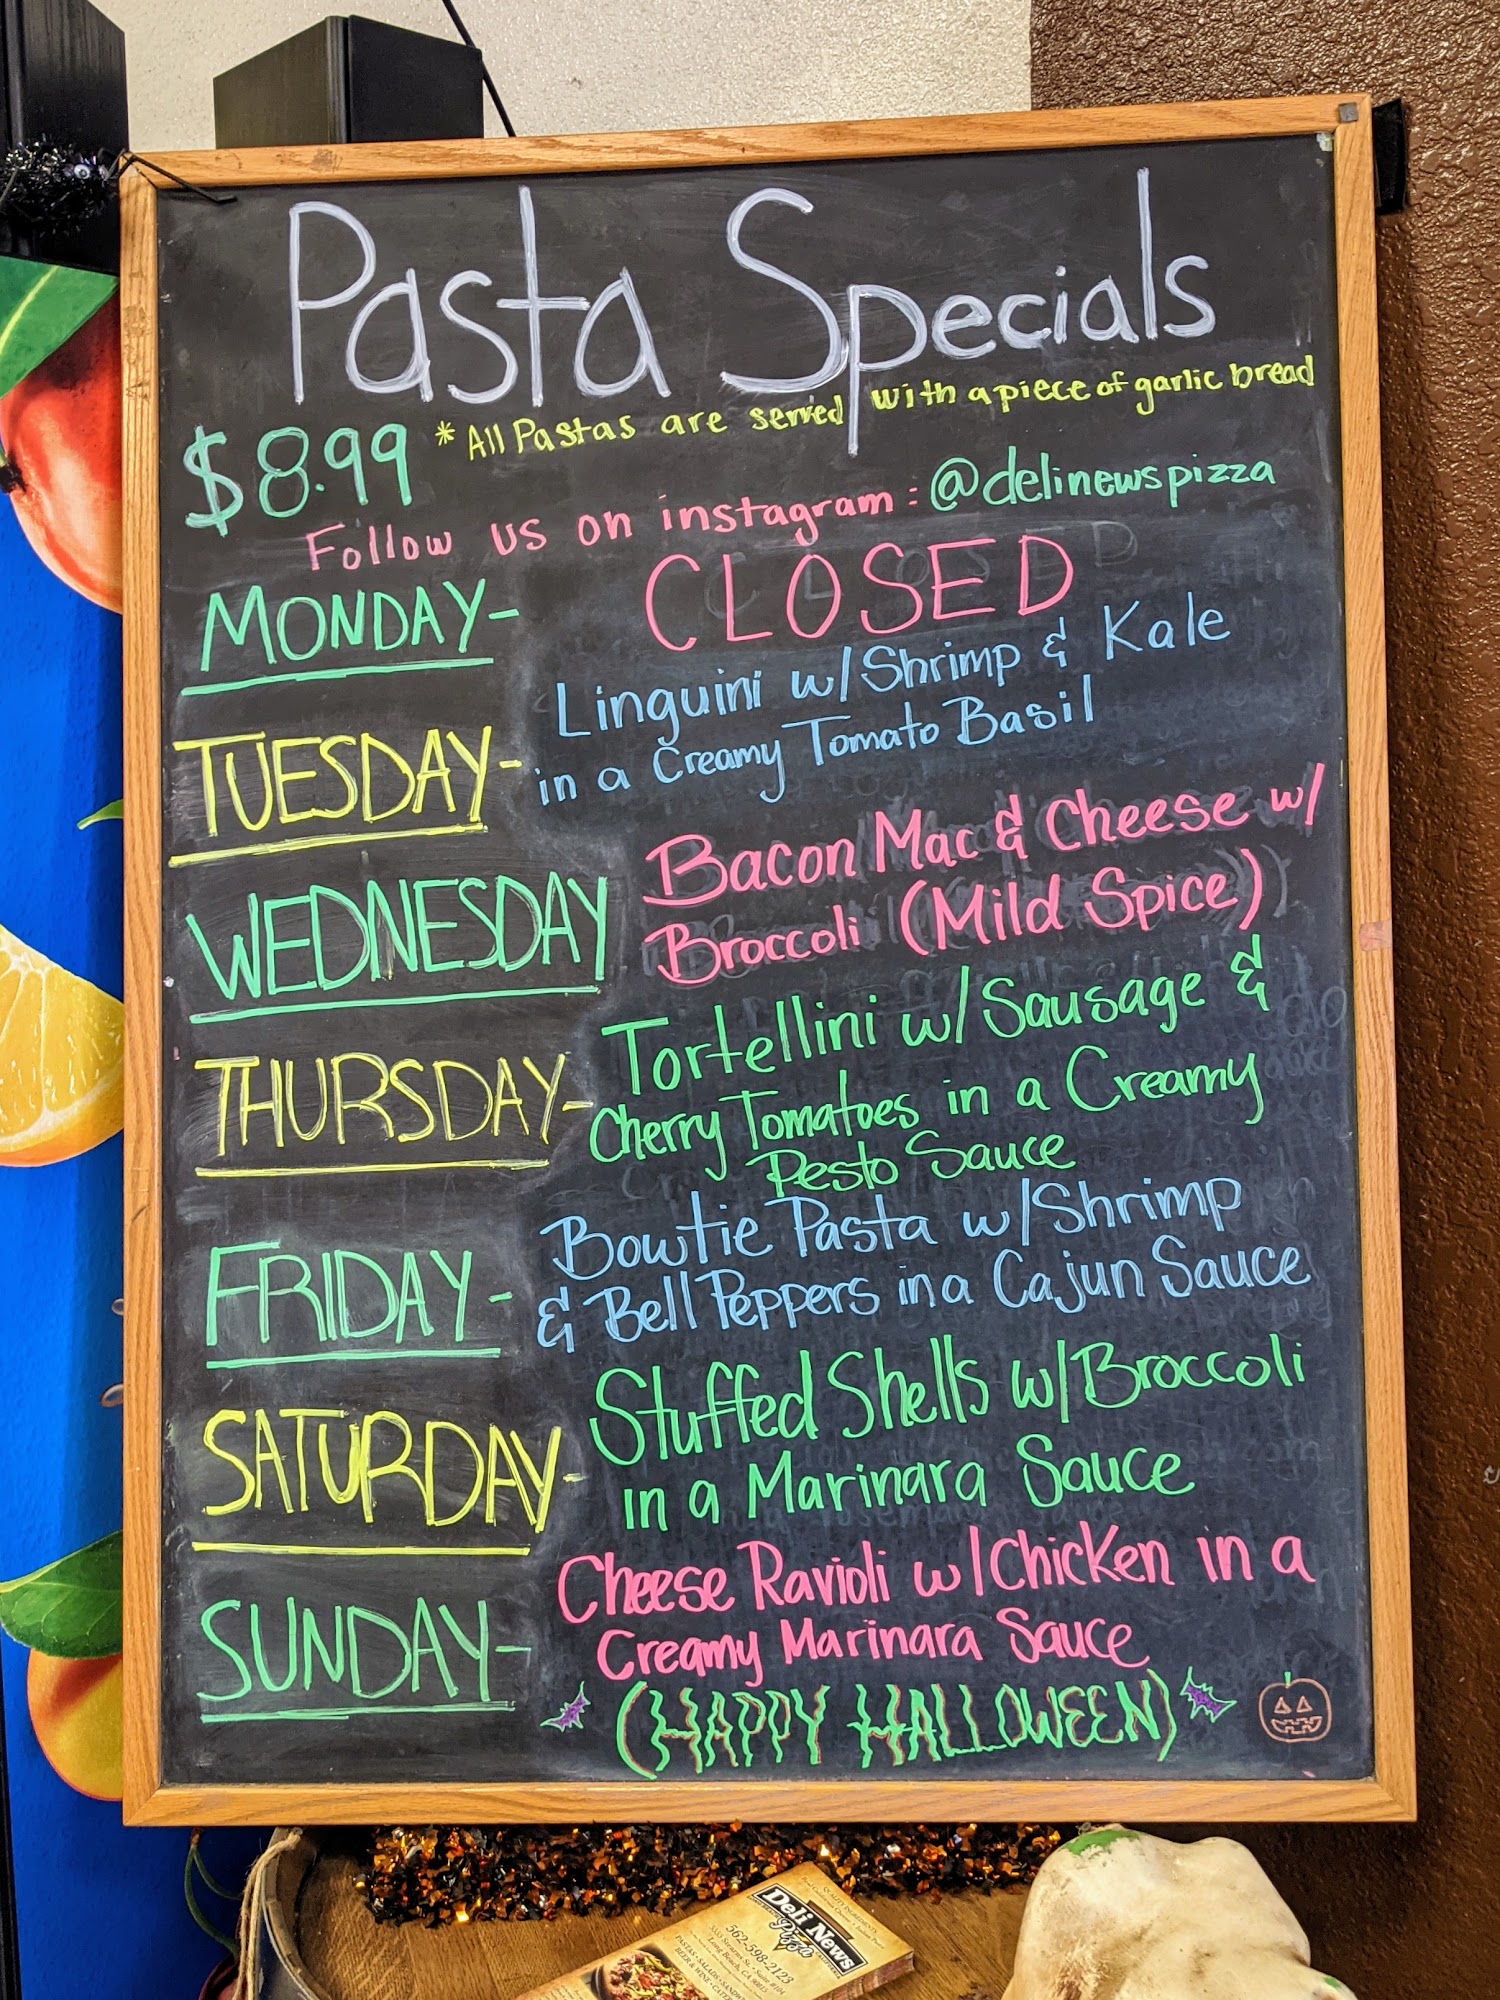 Pasta Specials
$8.99 *All Pastas are served with a piece of garlic bread
Follow us on instagram: @delinewspizza
MONDAY- CLOSED
TUESDAY- Linguini w/Shrimp & Kale
in a Creamy Tomato Basil
WEDNESDAY Bacon Mac & Cheese w/
Broccoli (Mild Spice)
THURSDAY- Tortellini w/Sausage &
Cherry Tomatoes in a Creamy
Pesto Sauce
FRIDAY- Bowtie Pasta w/Shrimp
& Bell Peppers in a Cajun Sauce
SATURDAY- Stuffed Shells w/Broccoli
in a Marinara Sauce
SUNDAY- Cheese Ravioli w/Chicken in a
Creamy Marinara Sauce
(HAPPY HALLOWEEN)
Deli News
Pizza
562-598-2123
Long Beach, CA